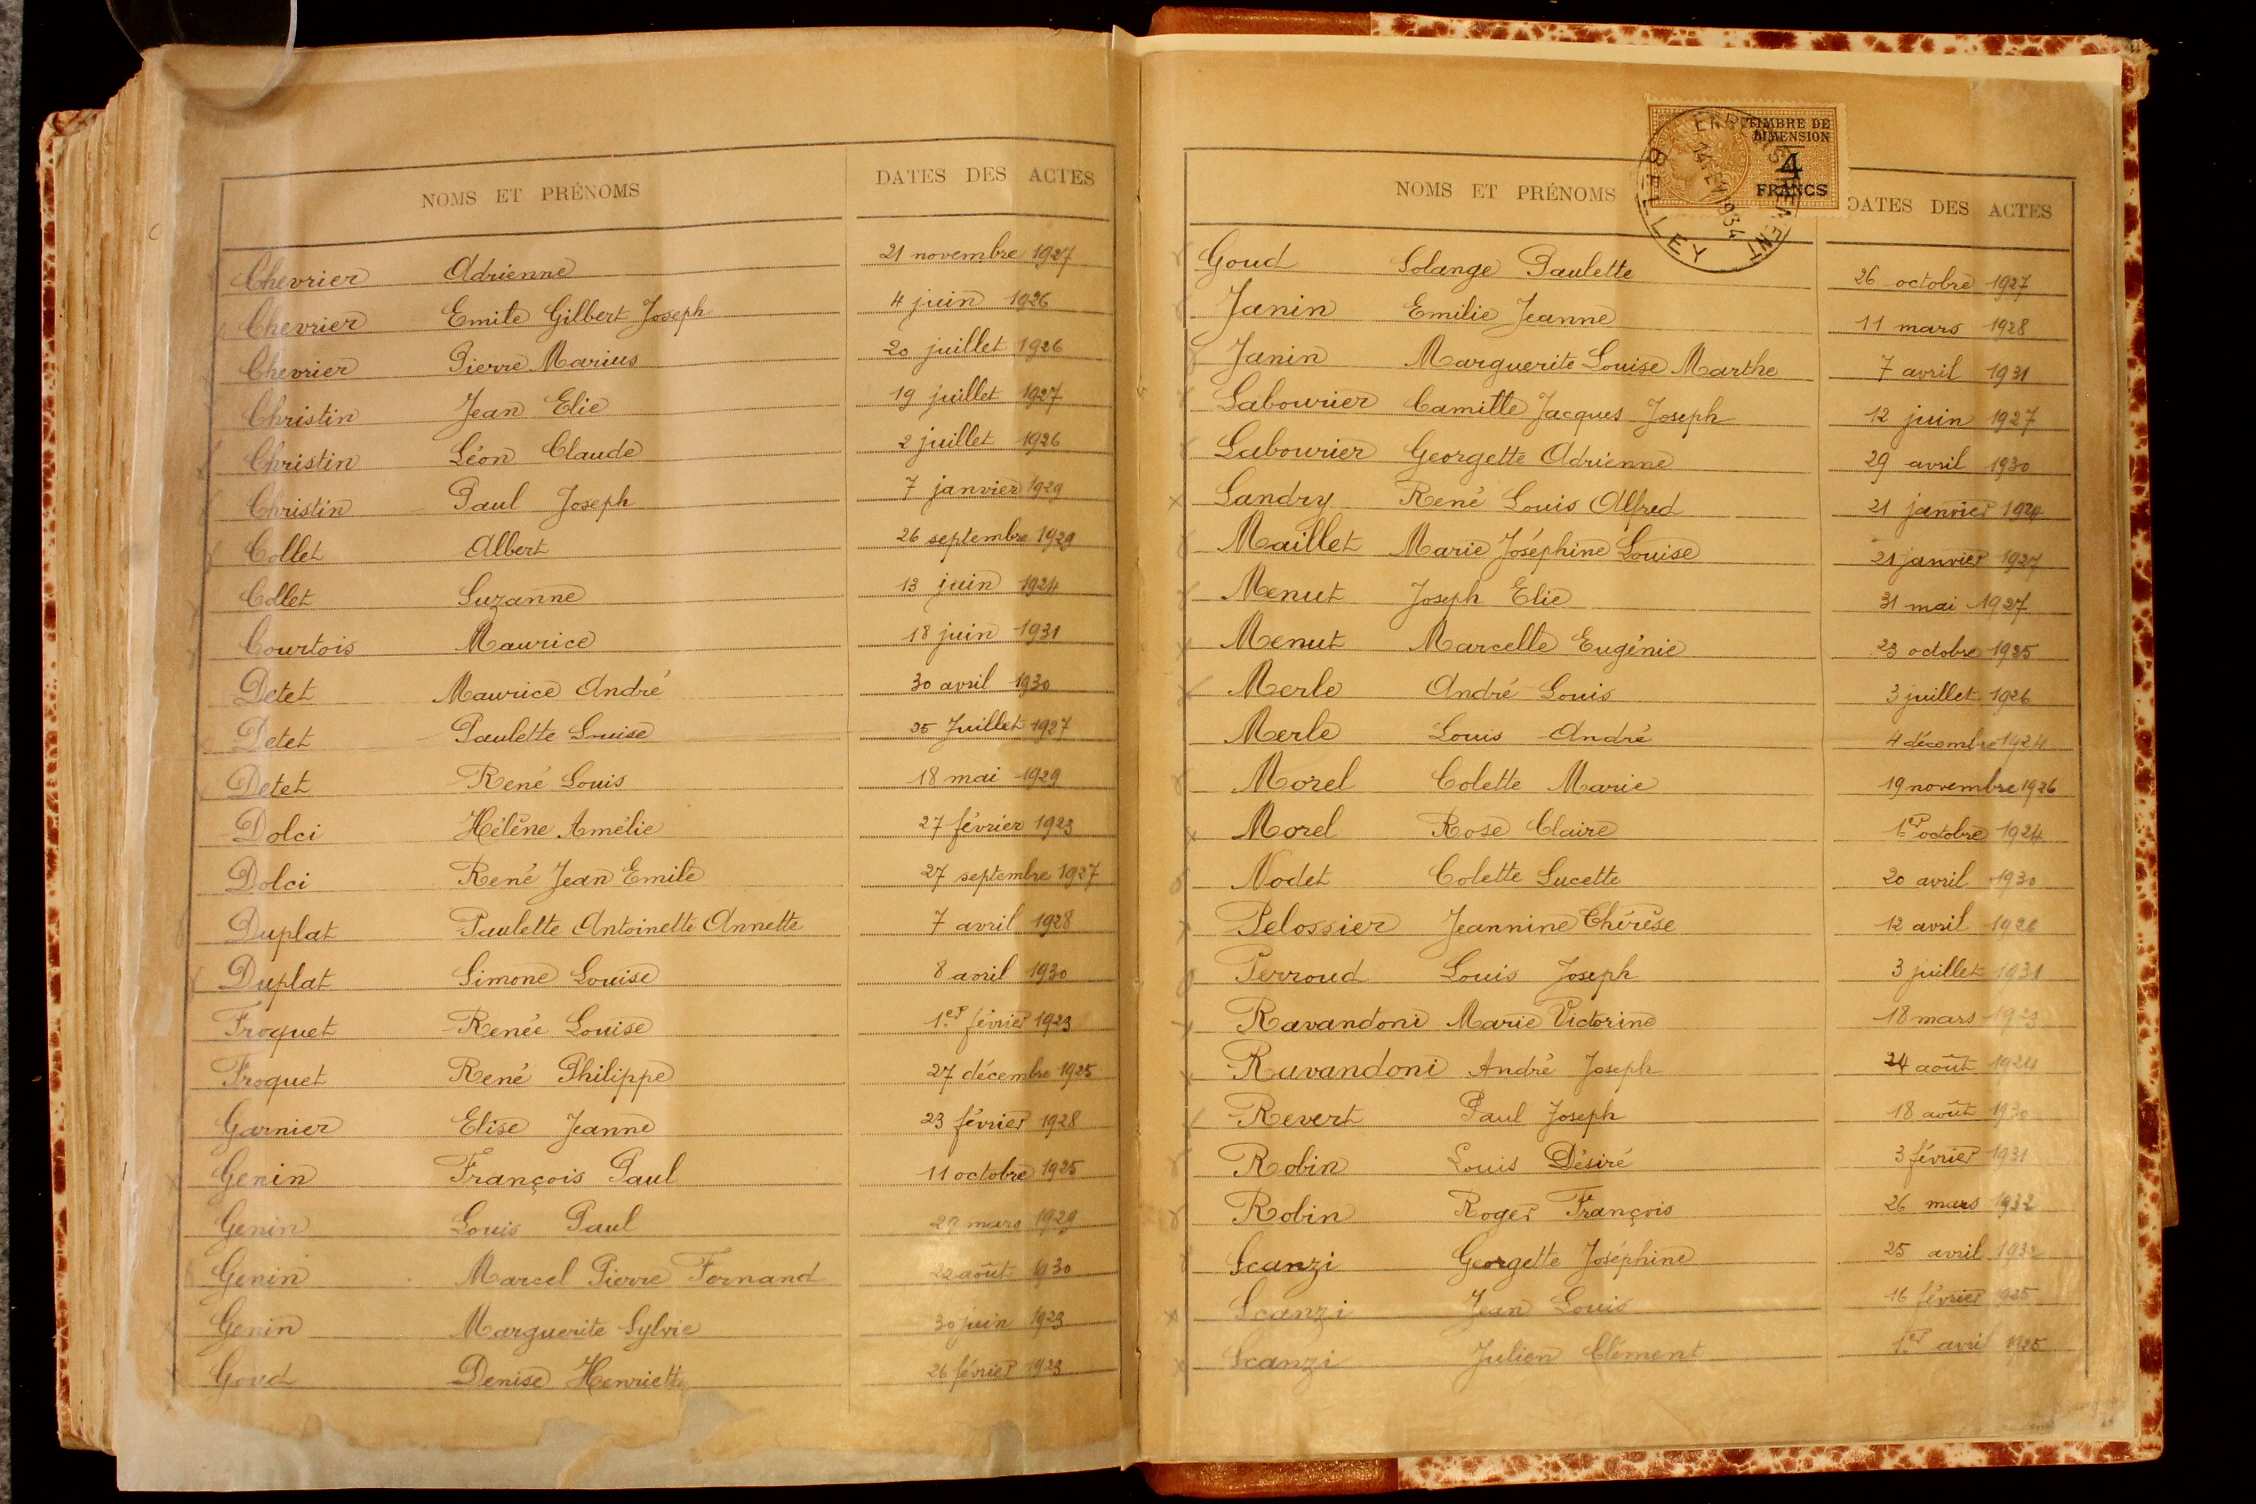 NOMS ET PRÉNOMS DATES DES ACTES
Chevrier Adrienne 21 novembre 1927
Chevrier Emile Gilbert Joseph 4 juin 1926
Chevrier Pierre Marius 20 juillet 1926
Christin Jean Elie 19 juillet 1927
Christin Léon Claude 2 juillet 1926
Christin Paul Joseph 7 janvier 1929
Collet Albert 26 septembre 1929
Collet Suzanne 13 juin 1924
Courtois Maurice 18 juin 1931
Detet Maurice André 30 avril 1930
Detet Paulette Louise 25 Juillet 1927
Detet René Louis 18 mai 1929
Dolci Hélène Amélie 27 février 1923
Dolci René Jean Emile 27 septembre 1927
Duplat Paulette Antoinette Annette 7 avril 1928
Duplat Simone Louise 8 avril 1930
Froquet Renée Louise 1er février 1923
Froquet René Philippe 27 décembre 1925
Garnier Elise Jeanne 23 février 1928
Genin François Paul 11 octobre 1925
Genin Louis Paul 29 mars 1929
Genin Marcel Pierre Fernand 22 août 1930
Genin Marguerite Sylvie 30 juin 1923
Goud Denise Henriette 26 février 1923
TIMBRE DE
DIMENSION
4
FRANCS
ENREGISTREMENT
BELLEY
1934
NOMS ET PRÉNOMS DATES DES ACTES
Goud Solange Paulette 26 octobre 1927
Janin Emilie Jeanne 11 mars 1928
Janin Marguerite Louise Marthe 7 avril 1931
Labourier Camille Jacques Joseph 12 juin 1927
Labourier Georgette Adrienne 29 avril 1930
Landry René Louis Alfred 21 janvier
Maillet Marie Joséphine Louise 21 janvier 1927
Menut Joseph Elie 31 mai 1927
Menut Marcelle Eugénie 23 octobre 1925
Merle André Louis 3 juillet 1926
Merle Louis André 4 décembre 1924
Morel Colette Marie 19 novembre 1926
Morel Rose Claire 1er octobre 1924
Nodet Colette Lucette 20 avril 1930
Pelossier Jeannine Thérèse 12 avril 1926
Perroud Louis Joseph 3 juillet 1931
Ravandoni Marie Victorine 18 mars 1923
Ravandoni André Joseph 24 août 1924
Revert Paul Joseph 18 août 1930
Robin Louis Désiré 3 février 1931
Robin Roger François 26 mars 1932
Scanzi Georgette Joséphine 25 avril 1932
Scanzi Jean Louis 16 février 1925
Scanzi Julien Clément 1er avril 1925